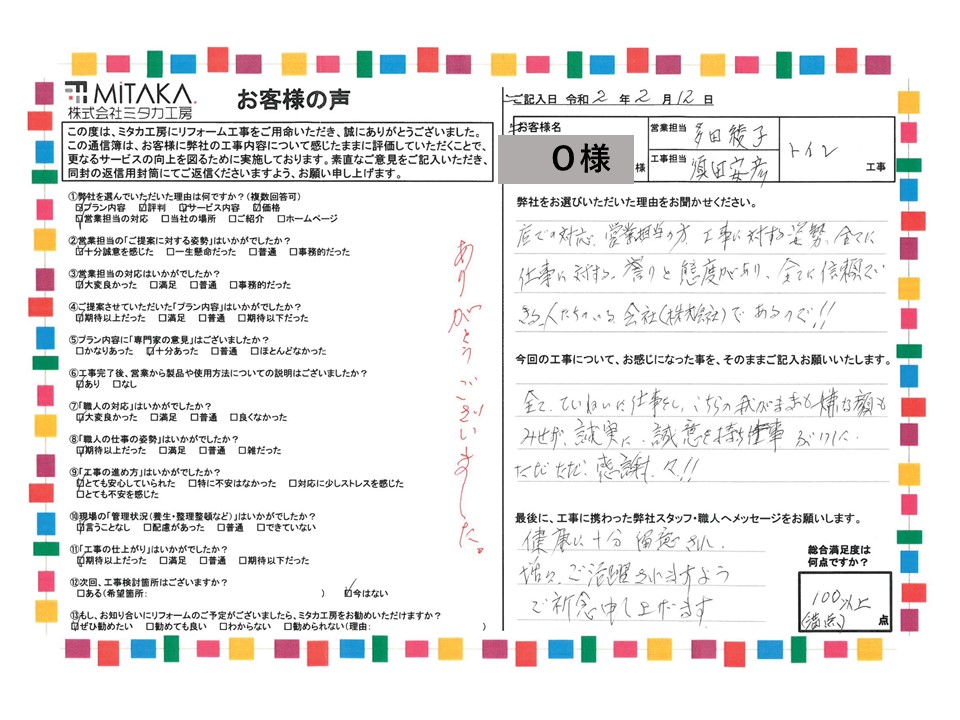 MiTAKA.
株式会社ミタカ工房
お客様の声
この度は、ミタカ工房にリフォーム工事をご用命いただき、誠にありがとうございました。
この通信簿は、お客様に弊社の工事内容について感じたままに評価していただくことで、
更なるサービスの向上を図るために実施しております。素直なご意見をご記入いただき、
同封の返信用封筒にてご返信くださいますよう、お願い申し上げます。
①弊社を選んでいただいた理由は何ですか?(複数回答可)
☑プラン内容 ☑評判 ☑サービス内容 ☑価格
☑営業担当の対応 □当社の場所 □ご紹介 □ホームページ
②営業担当の「ご提案に対する姿勢」はいかがでしたか?
☑十分誠意を感じた □一生懸命だった □普通 □事務的だった
③営業担当の対応はいかがでしたか?
☑大変良かった □満足 □普通 □事務的だった
④ご提案させていただいた「プラン内容」はいかがでしたか?
☑期待以上だった □満足 □普通 □期待以下だった
⑤プラン内容に「専門家の意見」はございましたか?
□かなりあった ☑十分あった □普通 □ほとんどなかった
⑥工事完了後、営業から製品や使用方法についての説明はございましたか?
☑あり □なし
⑦「職人の対応」はいかがでしたか?
☑大変良かった □満足 □普通 □良くなかった
⑧「職人の仕事の姿勢」はいかがでしたか?
☑期待以上だった □満足 □普通 □雑だった
⑨「工事の進め方」はいかがでしたか?
☑とても安心していられた □特に不安はなかった □対応に少しストレスを感じた
□とても不安を感じた
⑩現場の「管理状況(養生・整理整頓など)」はいかがでしたか?
☑言うことなし □配慮があった □普通 □できていない
⑪「工事の仕上がり」はいかがでしたか?
☑期待以上だった □満足 □普通 □期待以下だった
⑫次回、工事検討箇所はございますか?
□ある(希望箇所: ) ☑今はない
⑬もし、お知り合いにリフォームのご予定がございましたら、ミタカ工房をお勧めいただけますか?
☑ぜひ勧めたい □勧めても良い □わからない □勧められない(理由: )
ありがとうございました。
ご記入日 令和2年2月12日
お客様名
O様
様
営業担当 多田綾子
工事担当 須田安彦
トイレ
工事
弊社をお選びいただいた理由をお聞かせください。
店での対応、営業担当の方、工事に対する姿勢、全てに
仕事に対する、誇りと態度があり、全てに信頼で
きる人たちのいる会社(株式会社)であるので!!
今回の工事について、お感じになった事を、そのままご記入お願いいたします。
全て、ていねいに仕事をし、こちらの我がままも嫌な顔も
みせず、誠実に、誠意を持ち仕事
ただただ、感謝、々!!
最後に、工事に携わった弊社スタッフ・職人へメッセージをお願いします。
健康に十分留意され、
増々、ご活躍されますよう
ご祈念申し上げます
総合満足度は
何点ですか?
100以上
(満点)
点